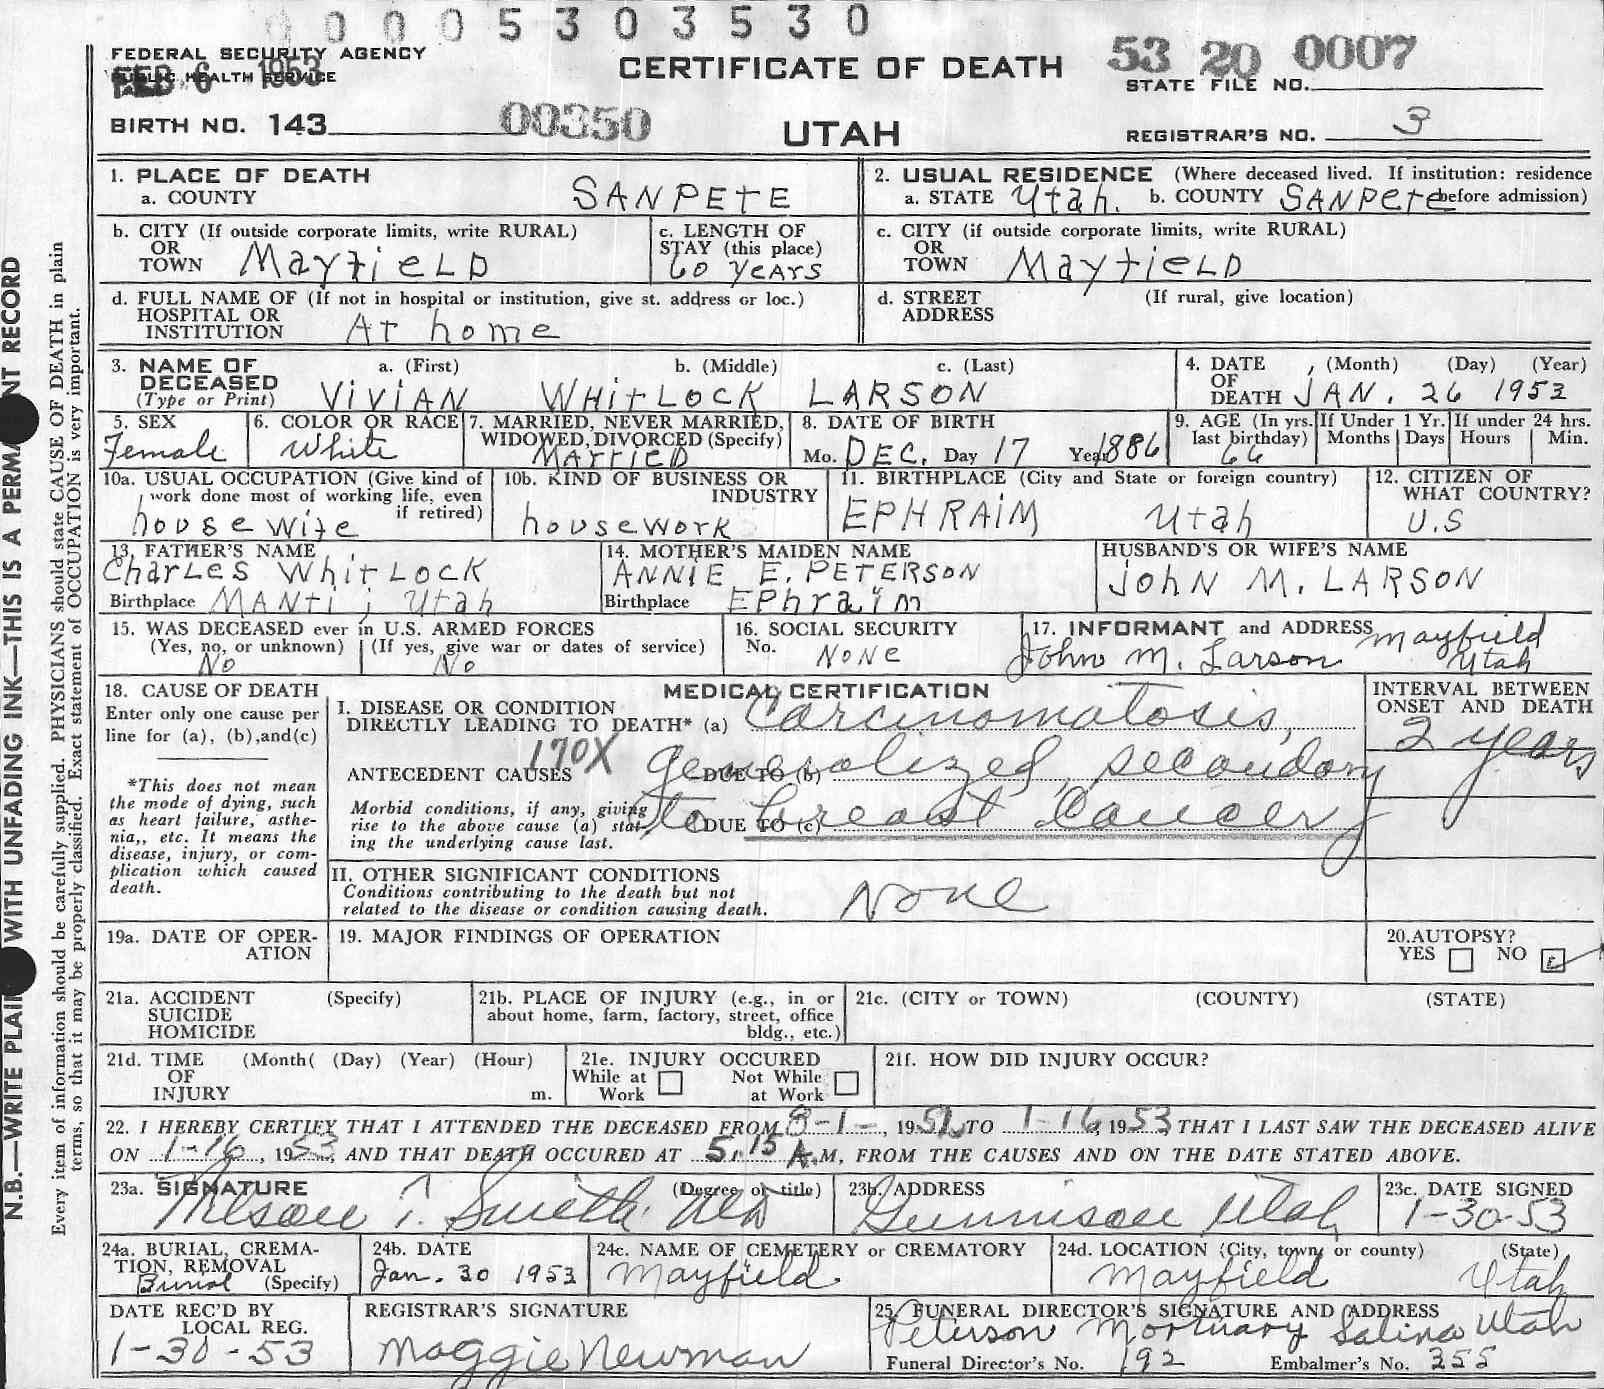 0 0 0 0 5 3 0 3 5 3 0
FEDERAL SECURITY AGENCY
PUBLIC HEALTH SERVICE
FEB 6 1953
CERTIFICATE OF DEATH
53 20 0007
STATE FILE NO.
BIRTH NO. 143
00350
UTAH
REGISTRAR'S NO. 3
1. PLACE OF DEATH
a. COUNTY SANPETE
2. USUAL RESIDENCE (Where deceased lived. If institution: residence before admission)
a. STATE Utah. b. COUNTY SANPETE
b. CITY (If outside corporate limits, write RURAL)
OR
TOWN MayfiELD
c. LENGTH OF
STAY (this place)
60 years
c. CITY (if outside corporate limits, write RURAL)
OR
TOWN MayfieLD
d. FULL NAME OF (If not in hospital or institution, give st. address or loc.)
HOSPITAL OR
INSTITUTION At home
d. STREET (If rural, give location)
ADDRESS
3. NAME OF DECEASED (Type or Print)
a. (First) b. (Middle) c. (Last)
ViViAN WHITLOCK LARSON
4. DATE OF DEATH (Month) (Day) (Year)
JAN. 26 1953
5. SEX
Female
6. COLOR OR RACE
White
7. MARRIED, NEVER MARRIED,
WIDOWED, DIVORCED (Specify)
MARRIED
8. DATE OF BIRTH
Mo. DEC. Day 17 Year 1886
9. AGE (In yrs. last birthday)
66
If Under 1 Yr.
Months Days
If under 24 hrs.
Hours Min.
10a. USUAL OCCUPATION (Give kind of
work done most of working life, even
if retired)
housewife
10b. KIND OF BUSINESS OR
INDUSTRY
housework
11. BIRTHPLACE (City and State or foreign country)
EPHRAIM Utah
12. CITIZEN OF
WHAT COUNTRY?
U.S
13. FATHER'S NAME
Charles Whitlock
Birthplace MANTi, Utah
14. MOTHER'S MAIDEN NAME
ANNIE E. PETERSON
Birthplace Ephraim
HUSBAND'S OR WIFE'S NAME
JOHN M. LARSON
15. WAS DECEASED ever in U.S. ARMED FORCES
(Yes, no, or unknown) (If yes, give war or dates of service)
No No
16. SOCIAL SECURITY
No. NONE
17. INFORMANT and ADDRESS
John M. Larson Mayfield
Utah
18. CAUSE OF DEATH
Enter only one cause per
line for (a), (b), and (c)
*This does not mean
the mode of dying, such
as heart failure, asthe-
nia,, etc. It means the
disease, injury, or com-
plication which caused
death.
MEDICAL CERTIFICATION
I. DISEASE OR CONDITION
DIRECTLY LEADING TO DEATH* (a) Carcinomatosis,
170X
ANTECEDENT CAUSES DUE TO (b) generalized, secondary
Morbid conditions, if any, giving
rise to the above cause (a) stat-
ing the underlying cause last.
DUE TO (c) to breast Cancer
INTERVAL BETWEEN
ONSET AND DEATH
2 years
II. OTHER SIGNIFICANT CONDITIONS
Conditions contributing to the death but not
related to the disease or condition causing death.
None
19a. DATE OF OPER-
ATION
19. MAJOR FINDINGS OF OPERATION
20. AUTOPSY?
YES NO
21a. ACCIDENT (Specify)
SUICIDE
HOMICIDE
21b. PLACE OF INJURY (e.g., in or
about home, farm, factory, street, office
bldg., etc.)
21c. (CITY or TOWN) (COUNTY) (STATE)
21d. TIME (Month( (Day) (Year) (Hour)
OF
INJURY m.
21e. INJURY OCCURED
While at Work Not While at Work
21f. HOW DID INJURY OCCUR?
22. I HEREBY CERTIFY THAT I ATTENDED THE DECEASED FROM 8-1-, 1951, TO 1-16, 1953, THAT I LAST SAW THE DECEASED ALIVE
ON 1-16, 1953, AND THAT DEATH OCCURED AT 5:15 A.M, FROM THE CAUSES AND ON THE DATE STATED ABOVE.
23a. SIGNATURE (Degree or title)
T. Smith MD
23b. ADDRESS
Gunnison Utah
23c. DATE SIGNED
1-30-53
24a. BURIAL, CREMA-
TION, REMOVAL
Burial (Specify)
24b. DATE
Jan. 30 1953
24c. NAME OF CEMETERY or CREMATORY
Mayfield
24d. LOCATION (City, town, or county) (State)
Mayfield Utah
DATE REC'D BY
LOCAL REG.
1-30-53
REGISTRAR'S SIGNATURE
Maggie Newman
25. FUNERAL DIRECTOR'S SIGNATURE AND ADDRESS
Peterson Mortuary Salina Utah
Funeral Director's No. 192 Embalmer's No. 355
N.B.—WRITE PLAI WITH UNFADING INK—THIS IS A PERMA NT RECORD
Every item of information should be carefully supplied. PHYSICIANS should state CAUSE OF DEATH in plain
terms, so that it may be properly classified. Exact statement of OCCUPATION is very important.